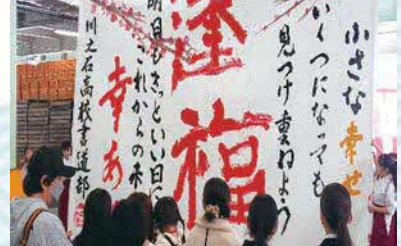 小さな幸せ
いくつになっても
見つけ重ねよう
逢福
明日もきっといい日に
これからの未
幸あ
川之石高校書道部